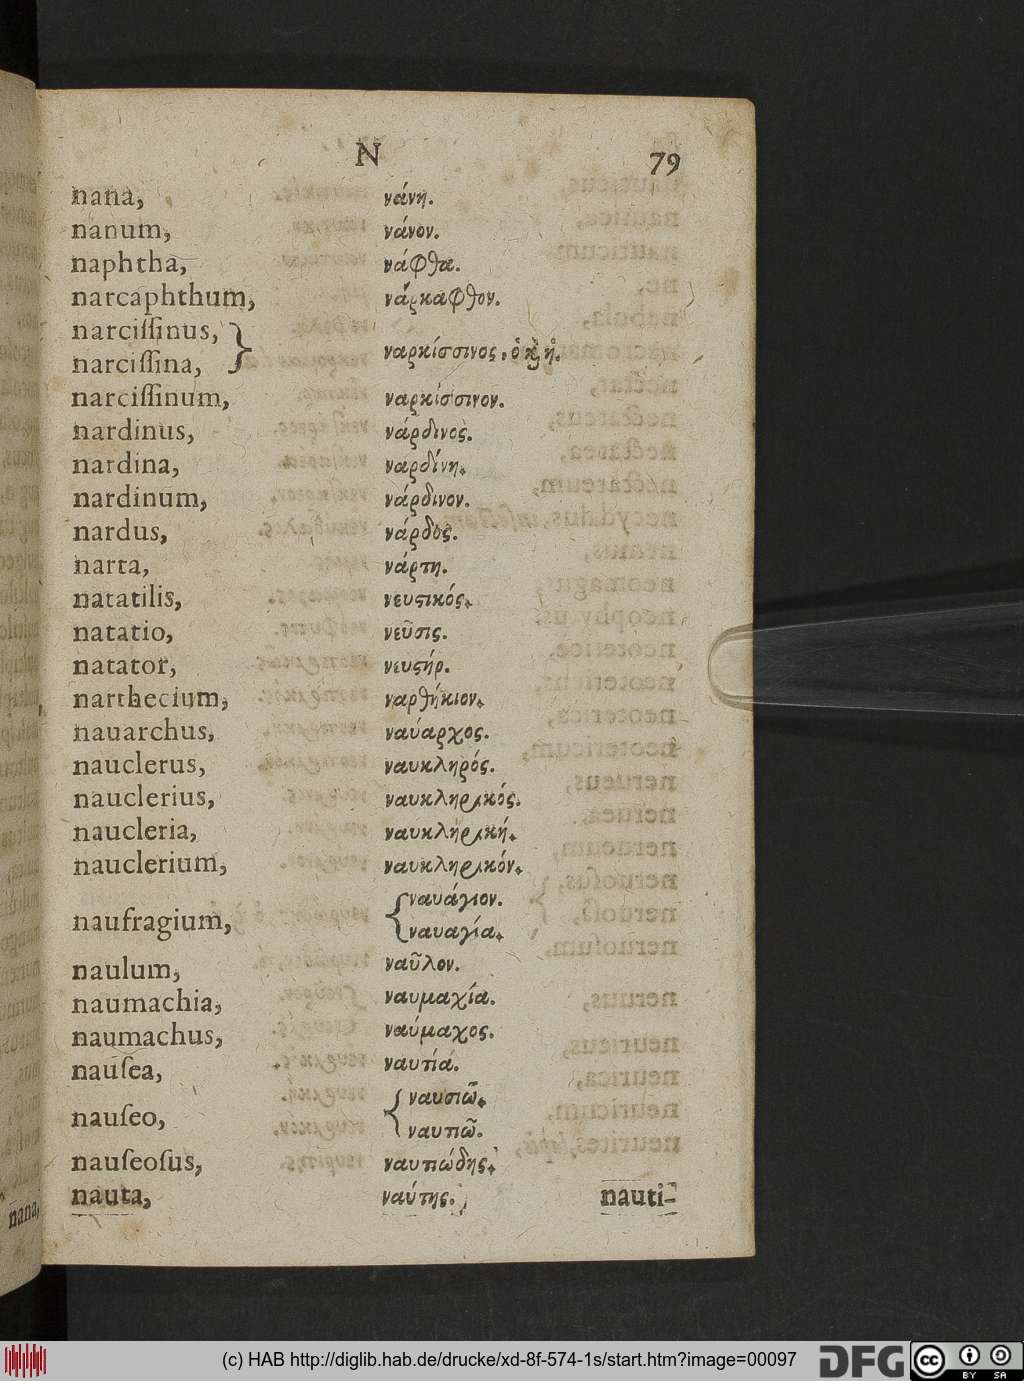 N 79
nana, νάνη.
nanum, νάνον.
naphtha, νάφθα.
narcaphthum, νάρκαφθον.
narciſſinus,
narciſſina, } ναρκίσσινος, ὁ κ̀ ἡ.
narciſſinum, ναρκίσσινον.
nardinus, νάρδινος.
nardina, ναρδίνη.
nardinum, νάρδινον.
nardus, νάρδος.
narta, νάρτη.
natatilis, νευϛικός.
natatio, νεῦσις.
natator, νευϛήρ.
narthecium, ναρθήκιον.
nauarchus, ναύαρχος.
nauclerus, ναυκληρός.
nauclerius, ναυκληρικός.
naucleria, ναυκληρική.
nauclerium, ναυκληρικόν.
naufragium, { ναυάγιον.
ναυαγία.
naulum, ναῦλον.
naumachia, ναυμαχία.
naumachus, ναύμαχος.
nauſea, ναυτία.
nauſeo, { ναυσιῶ.
ναυτιῶ.
nauſeoſus, ναυτιώδης.
nauta, ναύτης.
nauti-
nana,
(c) HAB http://diglib.hab.de/drucke/xd-8f-574-1s/start.htm?image=00097
DFG
cc BY SA